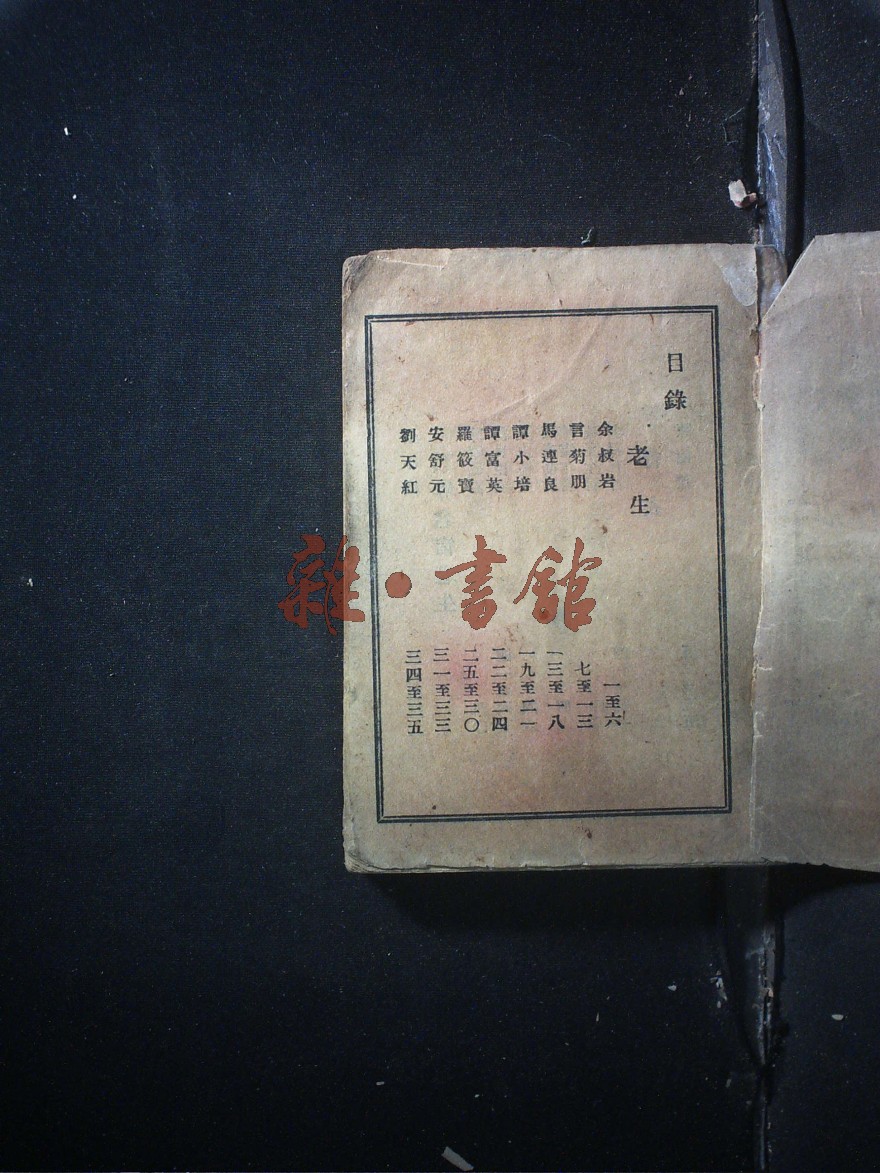 目錄
老生
余叔岩 一至六
言菊朋 七至一三
馬連良 一三至一八
譚小培 一九至二一
譚富英 二二至二四
羅筱寶 二五至三〇
安舒元 三一至三三
劉天紅 三四至三五
雜·書館